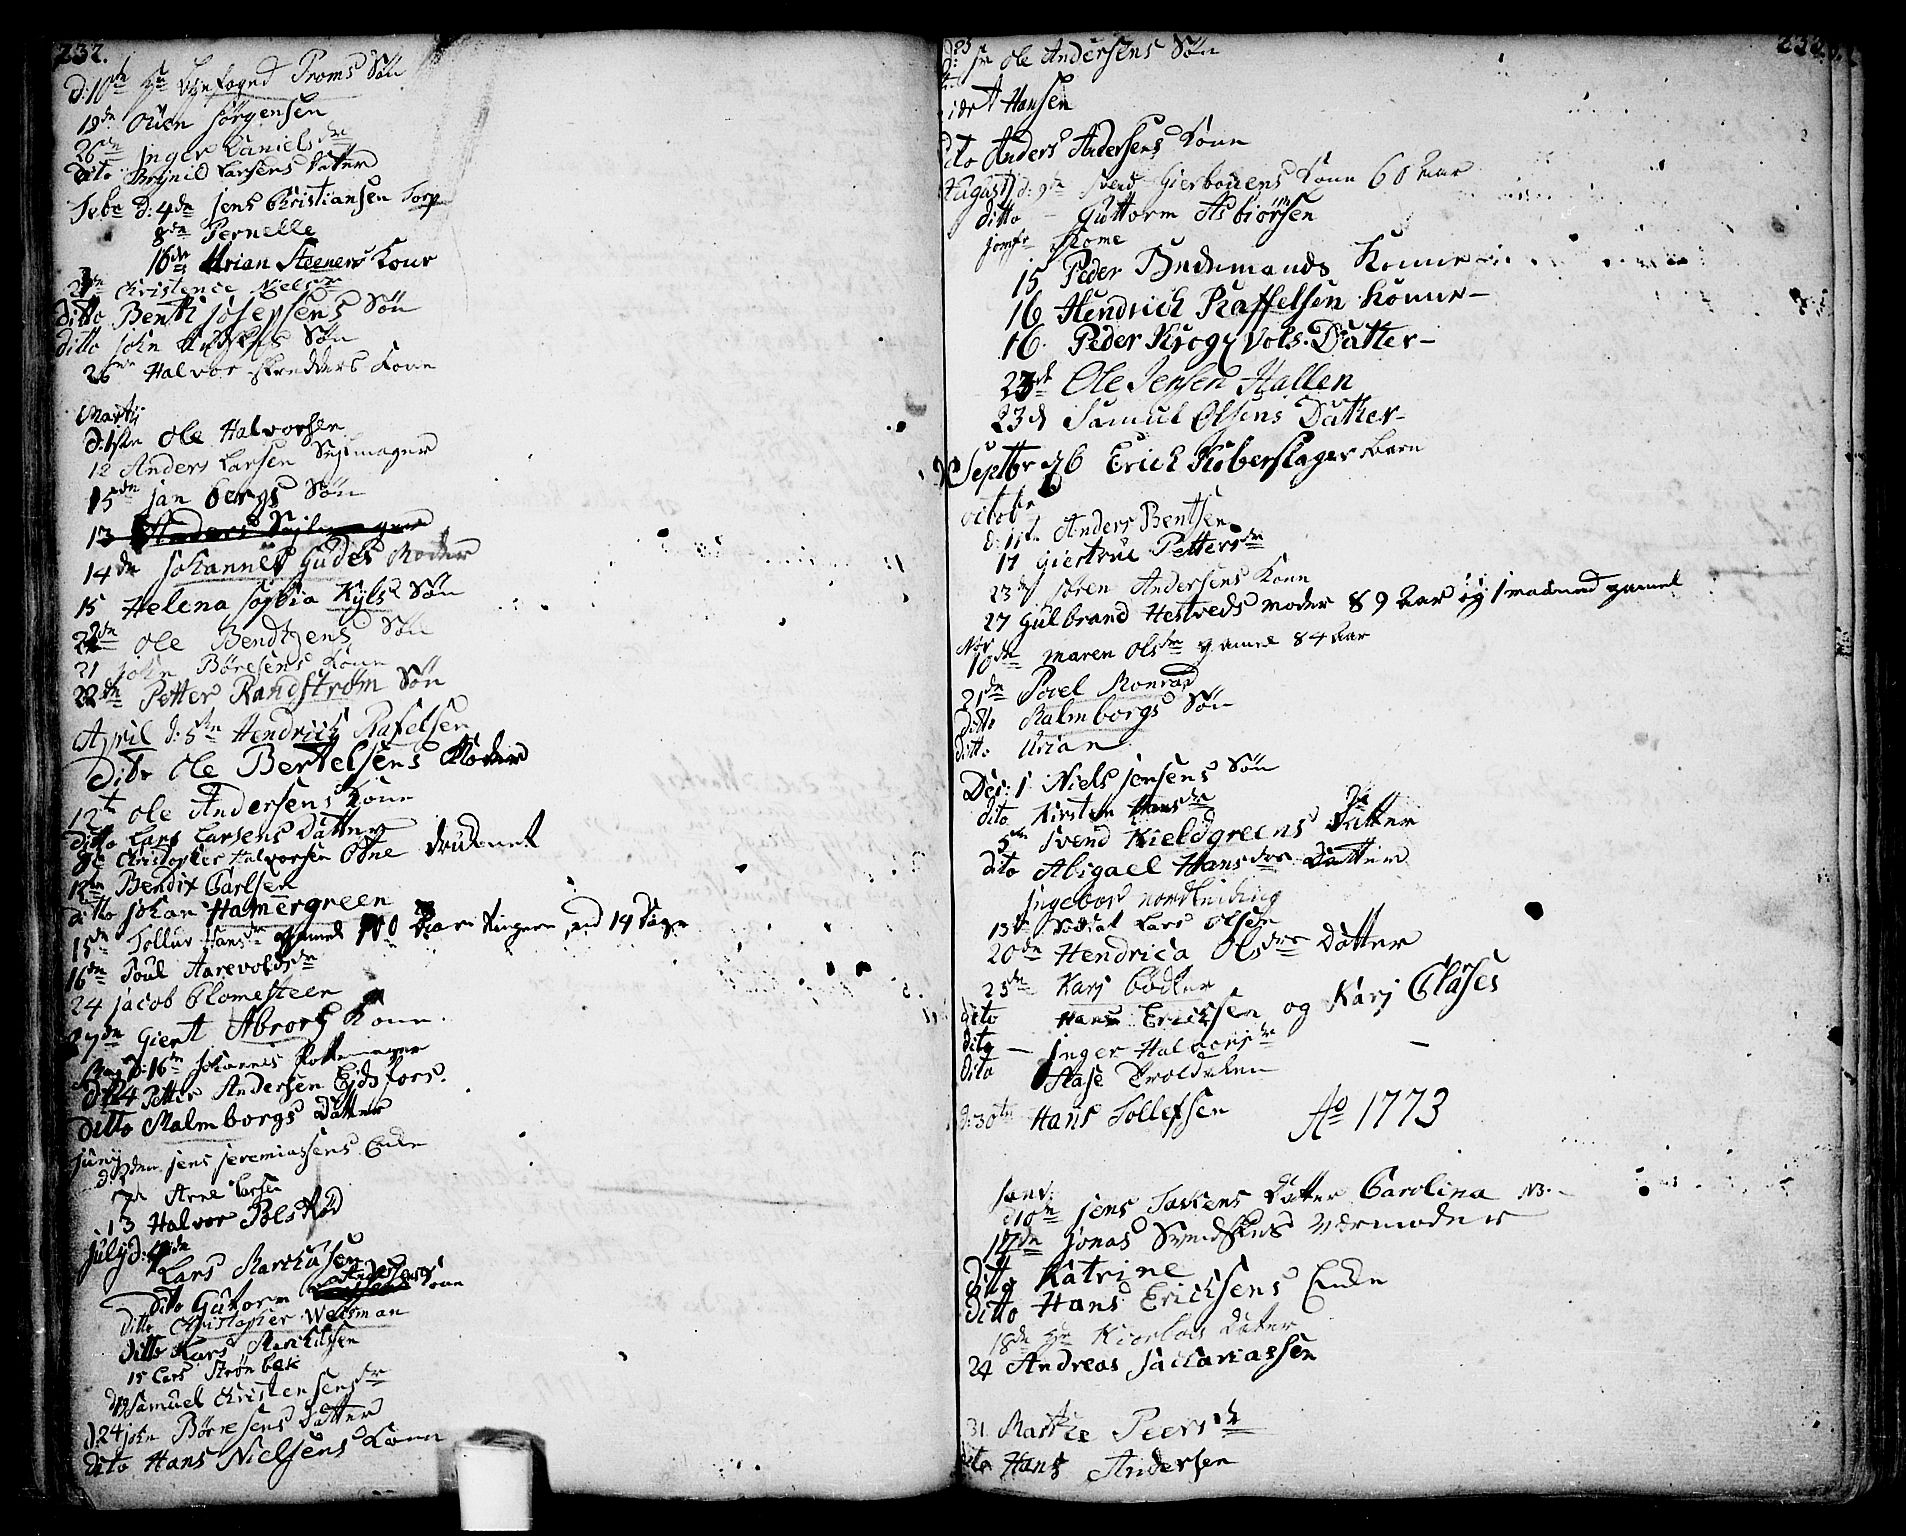 232.
d: 10de Hr Byefogd Proms Søn
19de Ouen Jørgensen
26de Inger Daniels dr
dito Brynild Larsens Datter
Febr d: 4de Jens Christiansen Torp
8de Pernelle
16de Urian Steeners Kone
Christence Niels dr
ditto Benth Josephsens Søn
ditto John Søn
26de Halvor skredders Kone
Martij
d: 1ste Ole Halvorsen
12 Anders Larsen Sejlmager
15de Jan Bergs Søn
13 Anders Sejlmager
14de Johannes Gudes Moder
15 Helena Sophia Kyls Søn
22de Ole Bendtzens Søn
21 John Børesens Kone
22de Petter Randstrøm Søn
April d: 5te Hendrich Rafelsen
Dito Ole Bertelsens Moder
12t Ole Andersens Kone
ditto Lars Larsens Datter
Christopher Halvorsen Odne druknet
12te Bendix Carlsen
ditto Johan Hamergreen
15de Tollur Hans dr gamel 100 Aar ringere end 14 Dage
16de Poul Aarevolds dr
24 Jacob Blomesteen
27de Giert Abrors Kone
May d: 16de Johannes Pottemager
d: 24 Petter Andersen Eidsfors.
ditto Malmborgs Datter
Junij
d: 3den Jens Jeremiassens Enke
7d Arne Larsen
13 Halvor Bolstad
July d: 4de
Lars Marchusen
dito Gutorm Andersens Kone
ditto Christopher Weisman
ditto Lars Marchussen
15 Lars Strømbek
d 19 Samuel Christensens dr
d. 24 John Børresens Datter
dito Hans Nielsens Kone
232.
d: 25 Ole Andersens Søn
Hansen
dito Anders Andersens Kone
August d: 9de Svend Gierbouens Kone 60 Aar
ditto – Guttorm Asbiørsen
jomfr Skome
15 Peder Budemands Kone
16 Hendrich Raffelsen Kone –
16. Peder Krogs Vols. Datter –
23d Ole Jensen Hallen
23d Samul Olsens Datter –
Septbr d 6 Erich Koberslager Barn
Octobr
d: 11te Anders Bentsen
17 Giertrue Petters dr
23d Søren Andersens Kone
27 Gulbrand Hestveds moder 89 Aar og 1 maaned gamel
Nov
10de Maren Ols dr gamel 84 Aar
21de Povel Monrad
ditto Malmborgs Søn
ditto Urian
Des: 1 Niels Jensens Søn
dito Kirsten Hans dr
5te Svend Kieldgreens Datter
dito Abigael Hans drs Datter
Ingebor
13de Soldat Lars Olsen
20de Hendrica Ols drs Datter
25de Karj Bødker
dito Hans Ericksen og Karj Clases
dito – Inger Halvors dr –
dito Aase
d: 30te Hans Tollefsen
Ao 1773
Janv:
d 10de Jens Tackens Datter Carolina NB. –
17de Jonas Svendskes Værmoder
ditto Katrine
ditto Hans Ericksens Enke
18de Hr Kierlos Dater
24 Andreas Sackariassen
31. Marthe Peers dr
dito Hans Andersen